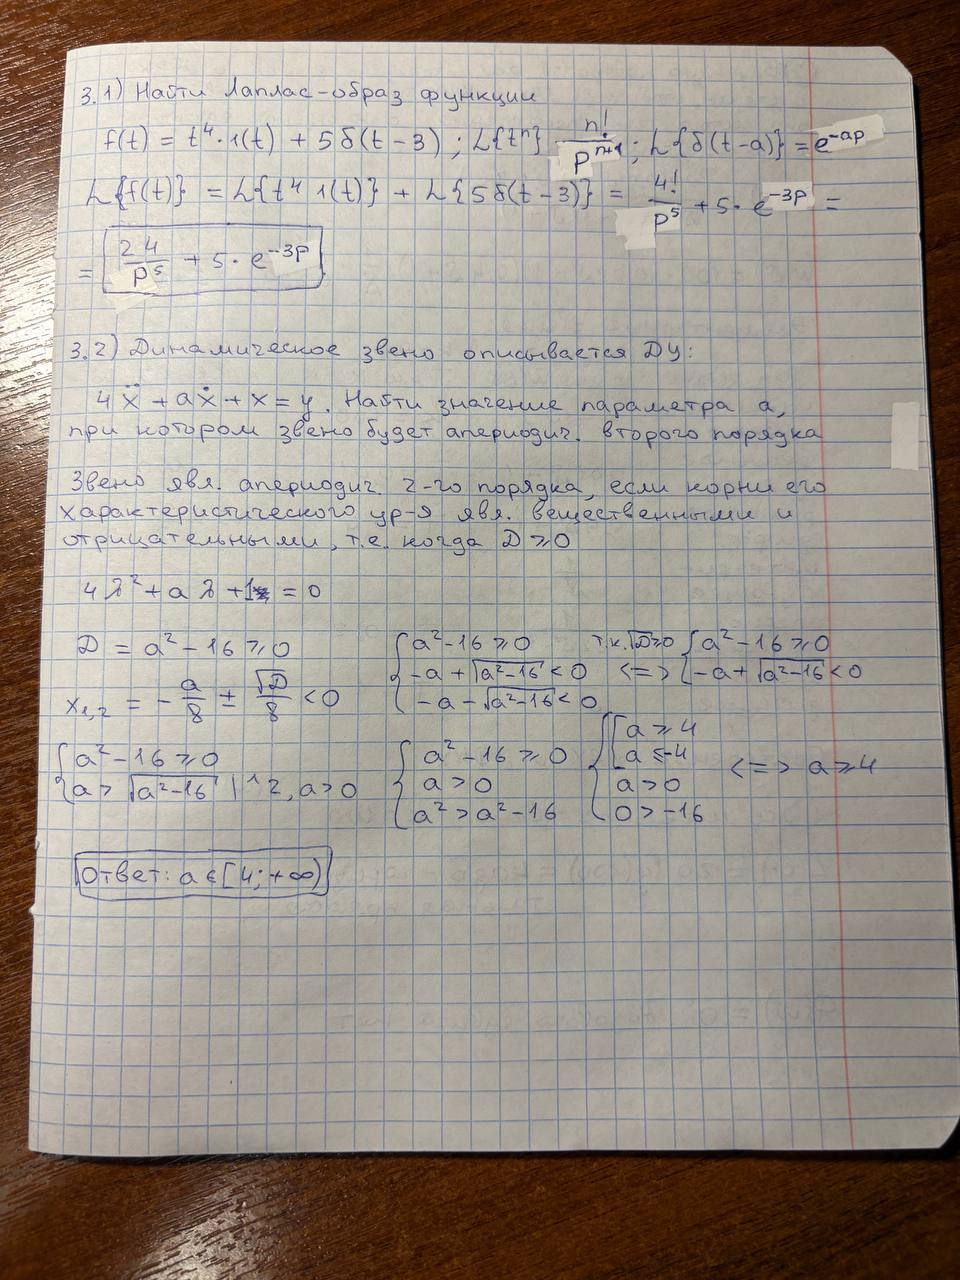 3.1) Найти Лаплас-образ функции
f(t) = t⁴·1(t) + 5δ(t-3) ; L{tⁿ} n!/pⁿ⁺¹ ; L{δ(t-a)} = e^(-ap)
L{f(t)} = L{t⁴ 1(t)} + L{5δ(t-3)} = 4!/p⁵ + 5·e^(-3p) =
= 24/p⁵ + 5·e^(-3p)
3.2) Динамическое звено описывается ДУ:
4ẍ + aẋ + x = y. Найти значение параметра a,
при котором звено будет апериодич. второго порядка
Звено явл. апериодич. 2-го порядка, если корни его
характеристического ур-я явл. вещественными и
отрицательными, т.е. когда D ⩾ 0
4λ² + aλ + 1 = 0
D = a² - 16 ⩾ 0
x₁,₂ = -a/8 ± √D/8 < 0
{ a² - 16 ⩾ 0
-a + √(a²-16) < 0
-a - √(a²-16) < 0
т.к. √D ⩾ 0
<=>
{ a² - 16 ⩾ 0
-a + √(a²-16) < 0
{ a² - 16 ⩾ 0
a > √(a²-16) | ^2, a > 0
{ a² - 16 ⩾ 0
a > 0
a² > a² - 16
{ [ a ⩾ 4
a ⩽ -4
a > 0
0 > -16
<=> a ⩾ 4
Ответ: a ∈ [4; +∞)